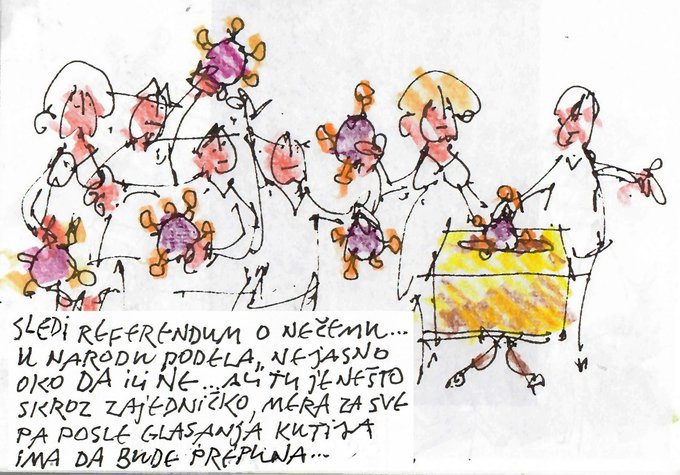 SLEDI REFERENDUM O NEČEMU...
U NARODU PODELA, NEJASNO
OKO DA ILI NE... ALI TU JE NEŠTO
SKROZ ZAJEDNIČKO, MERA ZA SVE
PA POSLE GLASANJA KUTIJA
IMA DA BUDE PREPUNA...